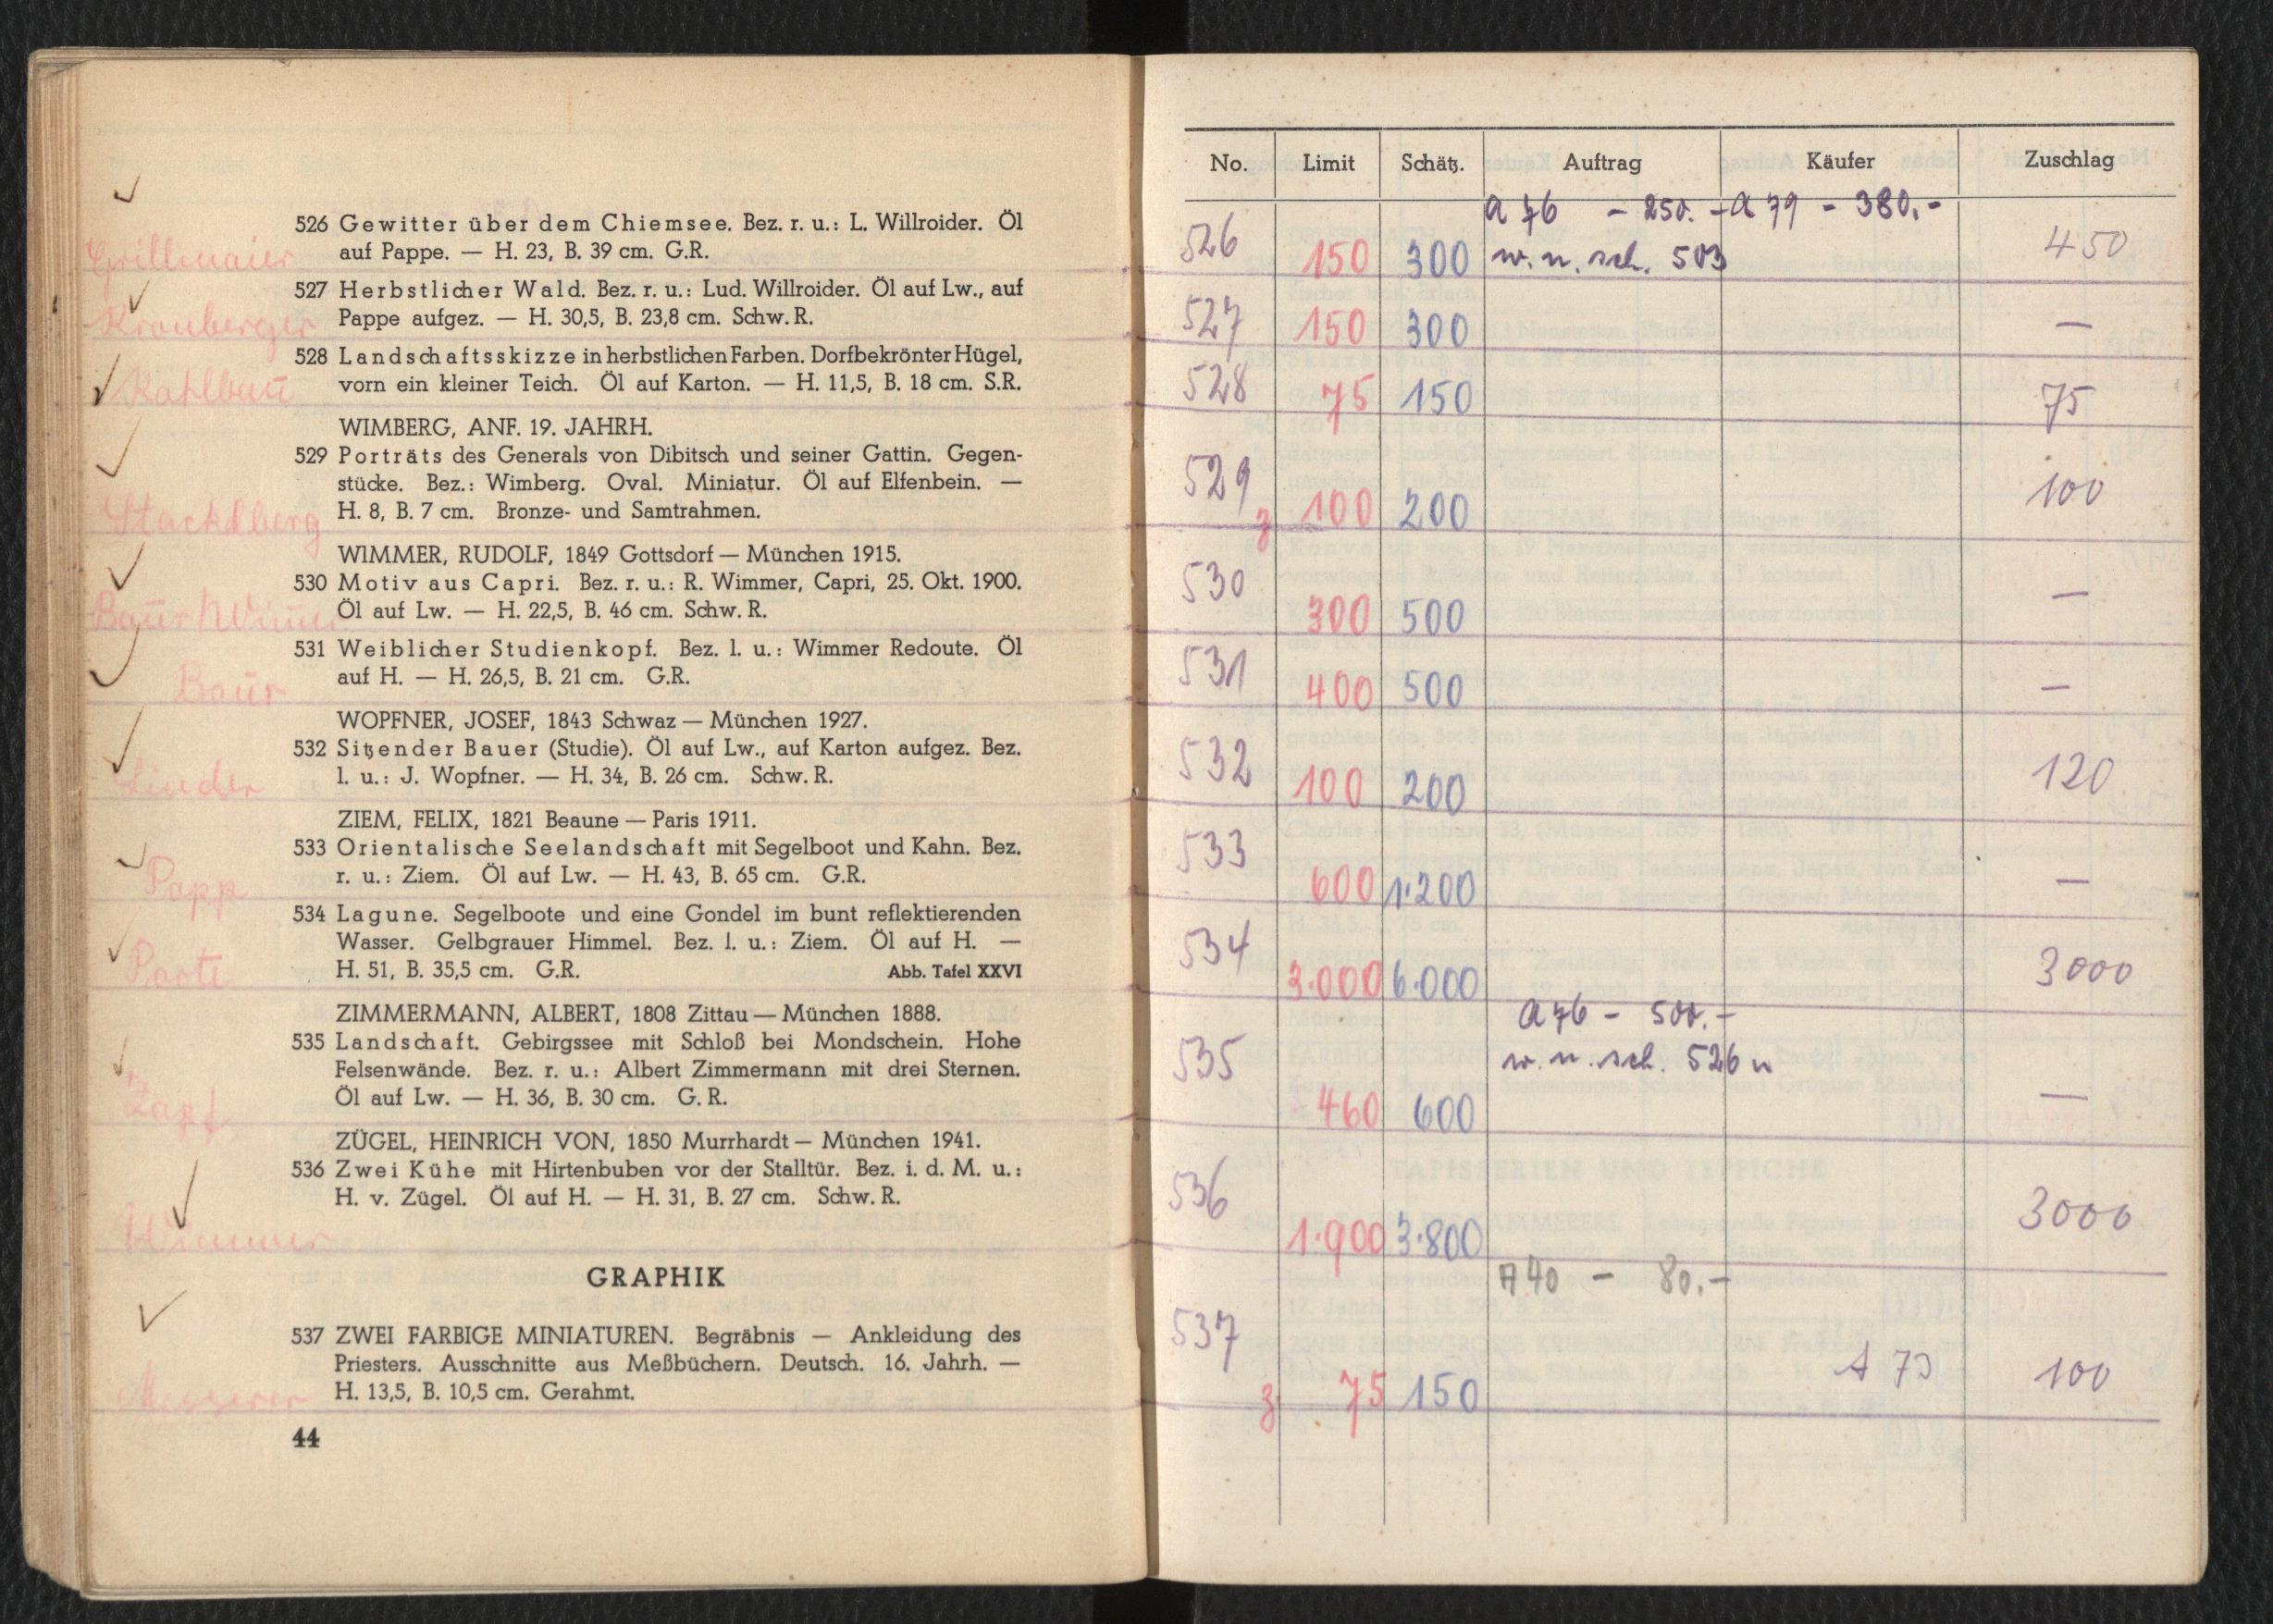 526 Gewitter über dem Chiemsee. Bez. r. u.: L. Willroider. Öl
auf Pappe. — H. 23, B. 39 cm. G.R.
Grillmaier
527 Herbstlicher Wald. Bez. r. u.: Lud. Willroider. Öl auf Lw., auf
Pappe aufgez. — H. 30,5, B. 23,8 cm. Schw. R.
Kronberger
528 Landschaftsskizze in herbstlichen Farben. Dorfbekrönter Hügel,
vorn ein kleiner Teich. Öl auf Karton. — H. 11,5, B. 18 cm. S.R.
WIMBERG, ANF. 19. JAHRH.
529 Porträts des Generals von Dibitsch und seiner Gattin. Gegen-
stücke. Bez.: Wimberg. Oval. Miniatur. Öl auf Elfenbein. —
H. 8, B. 7 cm. Bronze- und Samtrahmen.
Stackelberg
WIMMER, RUDOLF, 1849 Gottsdorf — München 1915.
530 Motiv aus Capri. Bez. r. u.: R. Wimmer, Capri, 25. Okt. 1900.
Öl auf Lw. — H. 22,5, B. 46 cm. Schw. R.
531 Weiblicher Studienkopf. Bez. l. u.: Wimmer Redoute. Öl
auf H. — H. 26,5, B. 21 cm. G.R.
Baur
WOPFNER, JOSEF, 1843 Schwaz — München 1927.
532 Sitzender Bauer (Studie). Öl auf Lw., auf Karton aufgez. Bez.
l. u.: J. Wopfner. — H. 34, B. 26 cm. Schw. R.
Linder
ZIEM, FELIX, 1821 Beaune — Paris 1911.
533 Orientalische Seelandschaft mit Segelboot und Kahn. Bez.
r. u.: Ziem. Öl auf Lw. — H. 43, B. 65 cm. G.R.
Papp
534 Lagune. Segelboote und eine Gondel im bunt reflektierenden
Wasser. Gelbgrauer Himmel. Bez. l. u.: Ziem. Öl auf H. —
H. 51, B. 35,5 cm. G.R. Abb. Tafel XXVI
ZIMMERMANN, ALBERT, 1808 Zittau — München 1888.
535 Landschaft. Gebirgssee mit Schloß bei Mondschein. Hohe
Felsenwände. Bez. r. u.: Albert Zimmermann mit drei Sternen.
Öl auf Lw. — H. 36, B. 30 cm. G. R.
Zapf
ZÜGEL, HEINRICH VON, 1850 Murrhardt — München 1941.
536 Zwei Kühe mit Hirtenbuben vor der Stalltür. Bez. i. d. M. u.:
H. v. Zügel. Öl auf H. — H. 31, B. 27 cm. Schw. R.
Wimmer
GRAPHIK
537 ZWEI FARBIGE MINIATUREN. Begräbnis — Ankleidung des
Priesters. Ausschnitte aus Meßbüchern. Deutsch. 16. Jahrh. —
H. 13,5, B. 10,5 cm. Gerahmt.
Messerer
44
No. Limit Schätz. Auftrag Käufer Zuschlag
a 76 - 250. - a 79 - 380.-
526 150 300 w. u. sch. 503 450
527 150 300 —
528 75 150 75
529 z 100 200 100
530 300 500 —
531 400 500 —
532 100 200 120
533 600 1.200 —
534 3.000 6.000 3000
a 76 - 500.-
w. u. sch. 526 u
535 460 600 —
536 1.900 3.800 3000
A 40 - 80.-
537 z 75 150 A 73 100